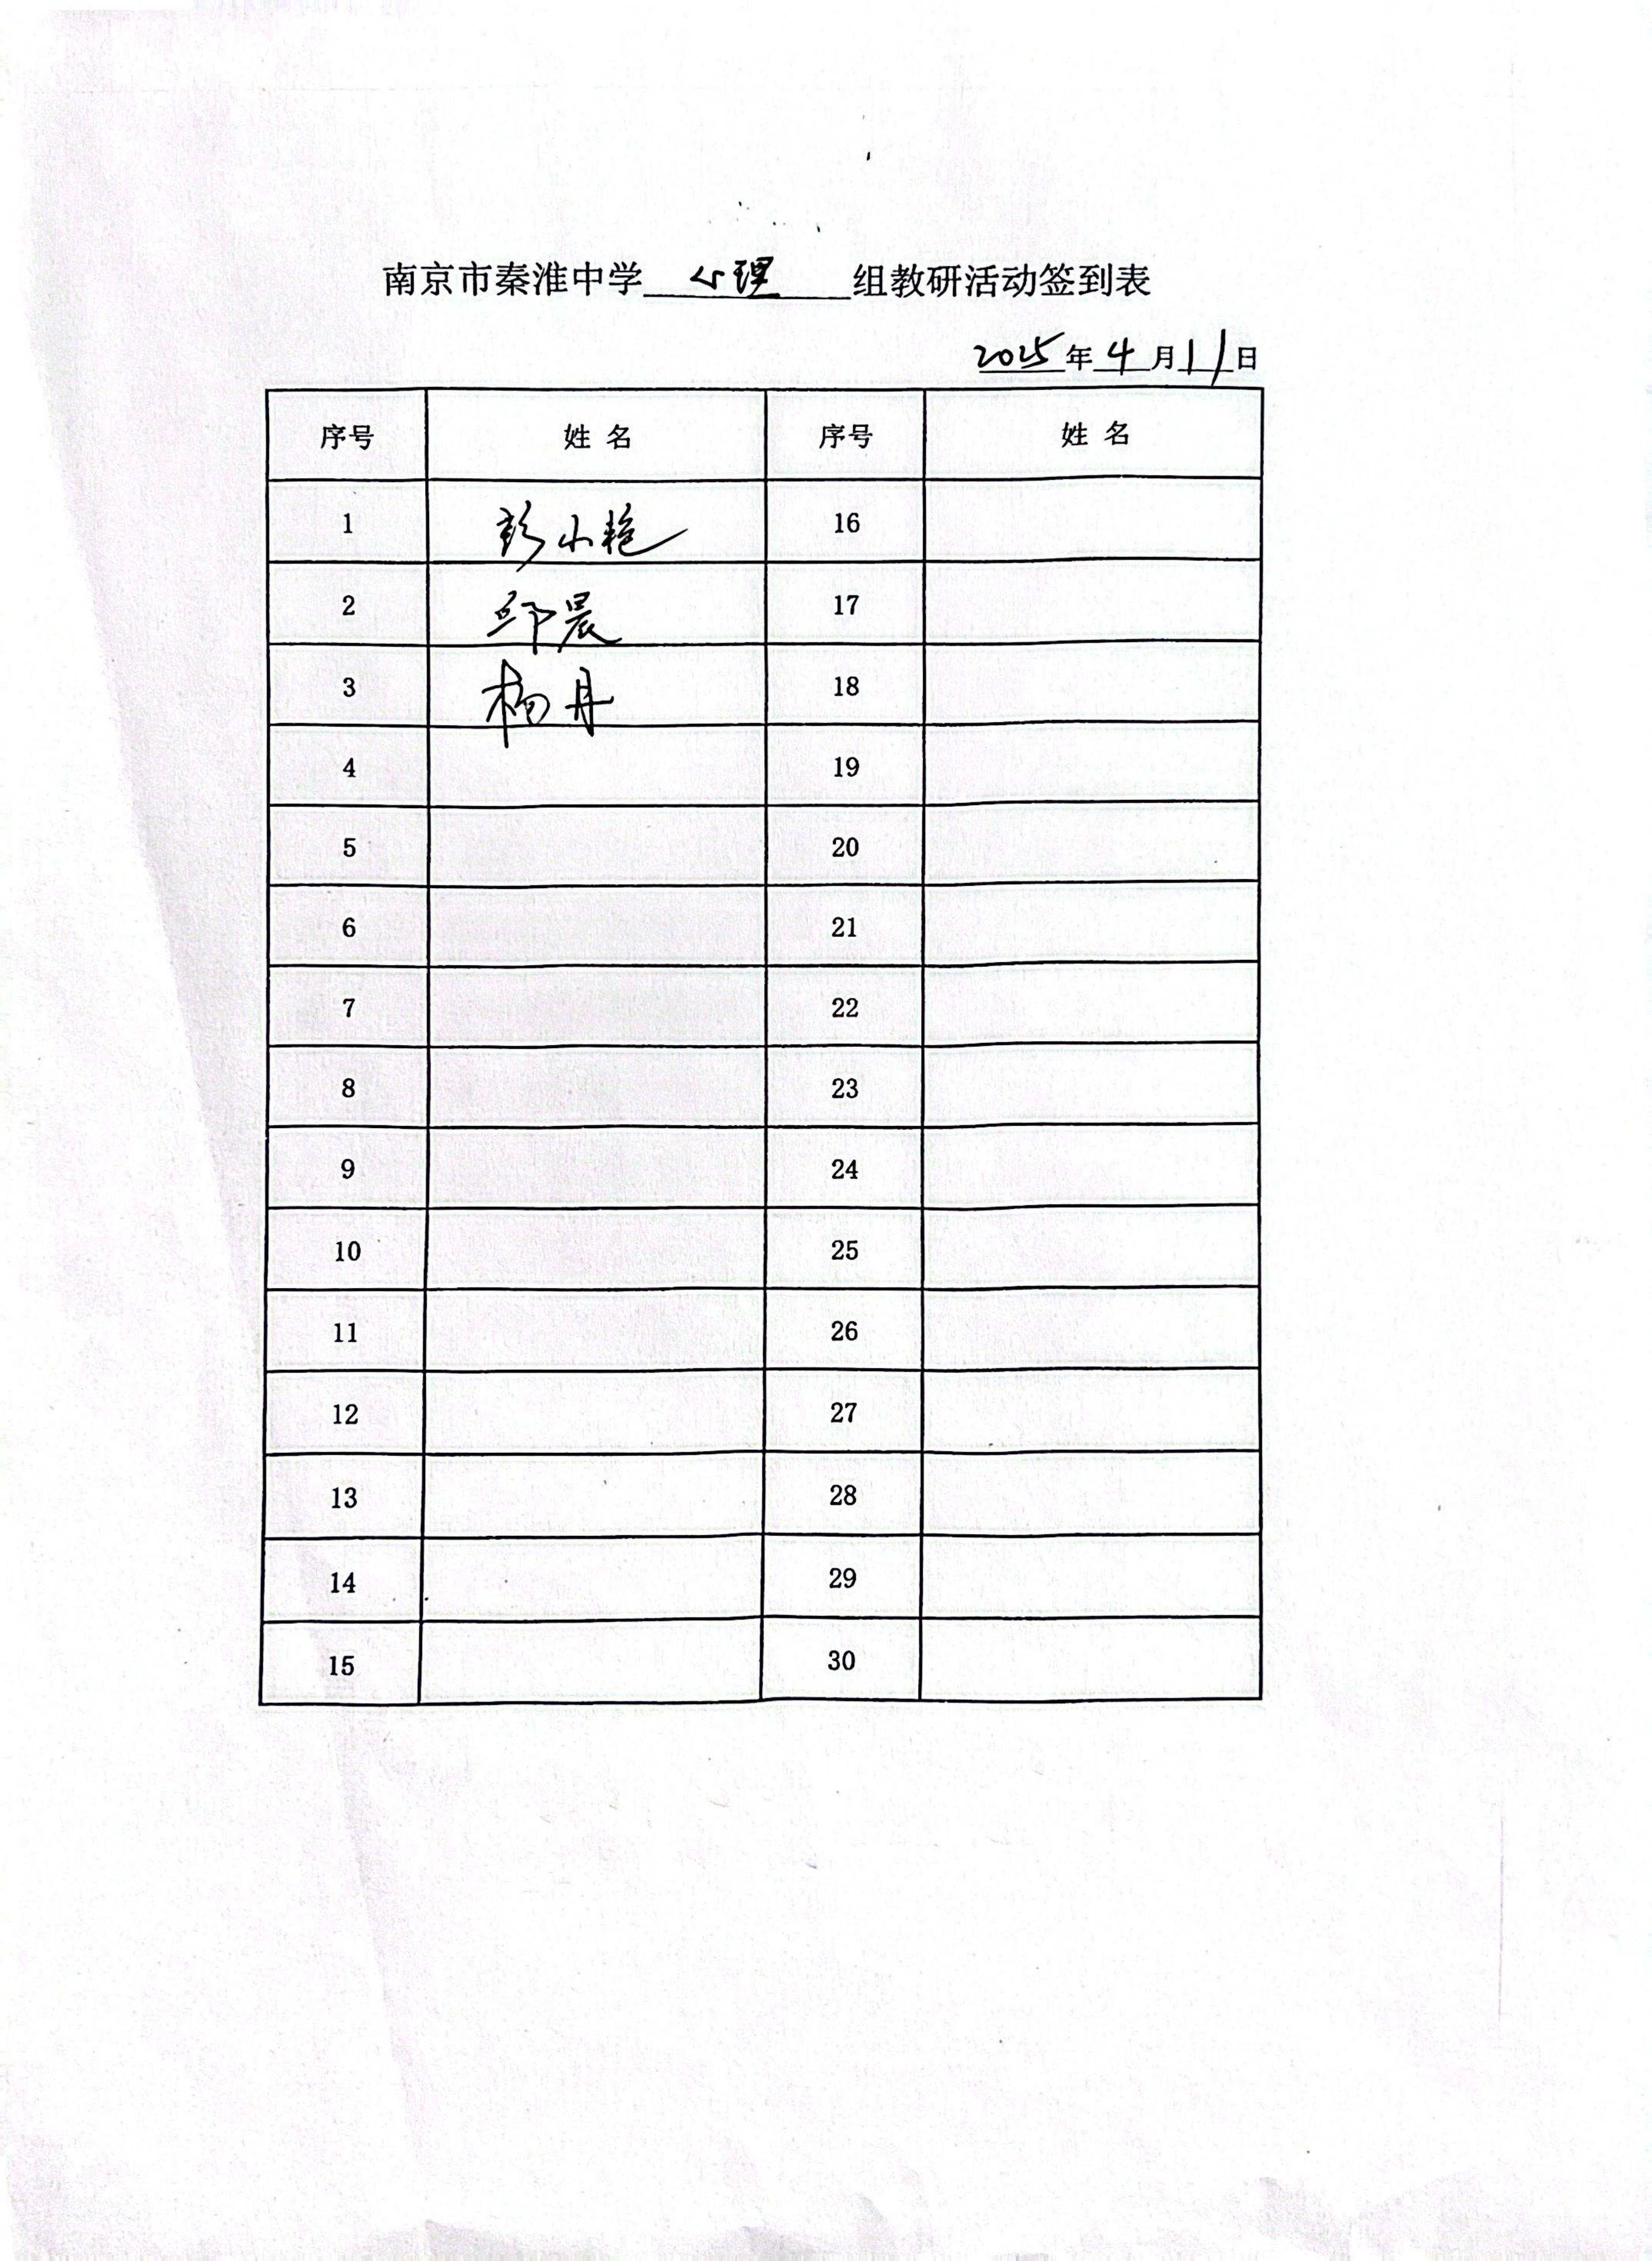 南京市秦淮中学 心理 组教研活动签到表
2025年4月11日
序号 姓名 序号 姓名
1 彭小艳 16
2 邱晨 17
3 杨丹 18
4 19
5 20
6 21
7 22
8 23
9 24
10 25
11 26
12 27
13 28
14 29
15 30